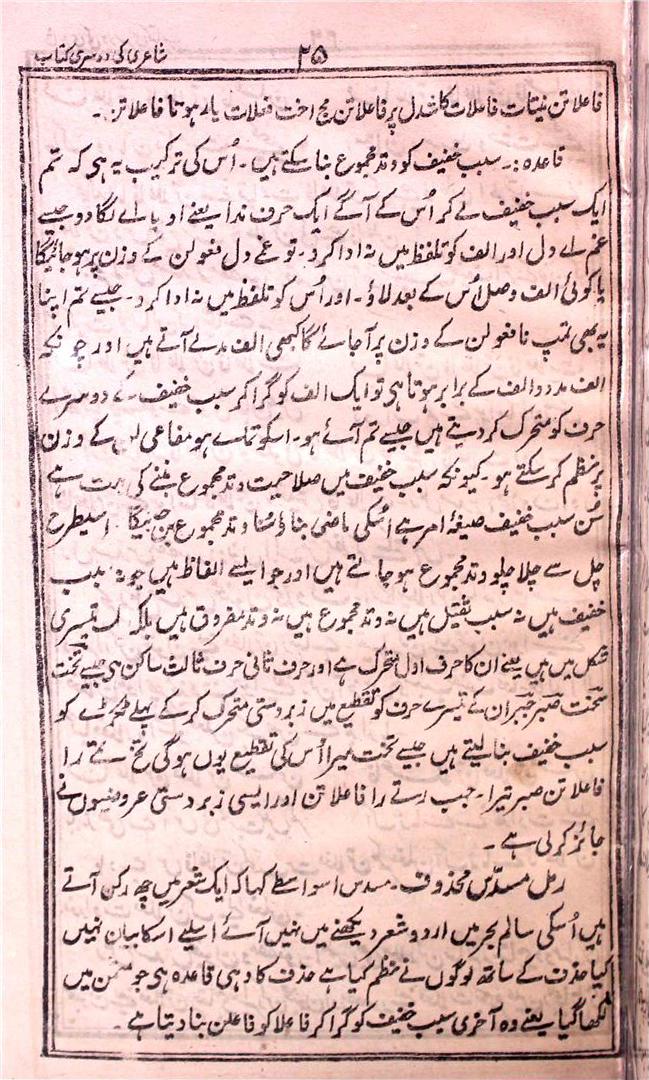 ۲۵ شاعری کی دوسری کتاب
فاعلاتن نیتات فاعلات کا شدل پر فاعلاتن مج اخت فعلات یار ہوتا فاعلاتن۔
قاعدہ:۔ سبب خفیف کو وتد مجموع بنا سکتے ہیں۔ اُس کی ترکیب یہ ہی کہ تم
ایک سبب خفیف لے کر اُس کے آگے ایک حرف ندا یعنے او یا اے لگا دو جیسے
غم اے دل اور الف کو تلفظ میں نہ ادا کرو۔ تو غمے دل فعولن کے وزن پر ہو جائیگا
یا کوئی الف وصل اُس کے بعد لاؤ۔ اور اُس کو تلفظ میں نہ ادا کرو۔ جیسے تم اپنا
یہ بھی تمپ نا فعولن کے وزن پر آجائے گا کبھی الف مدلے آتے ہیں اور چونکہ
الف مدد و الف کے برابر ہوتا ہی تو ایک الف کو گرا کر سبب خفیف کے دوسرے
حرف کو متحرک کر دیتے ہیں جیسے تم آئے ہو۔ اسکو تماے ہو مفاعی لن کے وزن
پر نظم کر سکتے ہو۔ کیونکہ سبب خفیف میں صلاحیت وتد مجموع بننے کی بہت ہے
سُن سبب خفیف صیغۂ امر ہے اُسکی ماضی بنا ڈسُنا وتد مجموع بن جئیگا۔ اسیطرح
چل سے چلا چلو وتد مجموع ہو جاتے ہیں اور جو ایسے الفاظ ہیں جو نہ سبب
خفیف ہیں نہ سبب ثقیل ہیں نہ وتد مجموع ہیں نہ وتد مفروق ہیں بلکہ ایک تیسری
شکل میں ہیں یعنے ان کا حرف اول متحرک ہے اور حرف ثانی حرف ثالث ساکن ہی جیسے تخت
سخت صبر جبر ان کے تیسرے حرف کو تقطیع میں زبردستی متحرک کر کے پہلے ٹکڑے کو
سبب خفیف بنا لیتے ہیں جیسے تخت میرا اُس کی تقطیع یوں ہوگی تخ تمے را
فاعلاتن صبر تیرا۔ جب رتے را فاعلاتن اور ایسی زبردستی عروضیوں نے
جائز کر لی ہے۔
رمل مسدّس محذوف۔ مسدس اسواسطے کہا کہ ایک شعر میں چھ رکن آتے
ہیں اُسکی سالم بحر میں اردو شعر دیکھنے میں نہیں آئے اسلیے اسکا بیان نہیں
کیا حذف کے ساتھ لوگوں نے نظم کیا ہے حذف کا وہی قاعدہ ہی جو مثمن میں
لکھا گیا یعنے وہ آخری سبب خفیف کو گرا کر فاعلا کو فاعلن بنا دیتا ہے۔